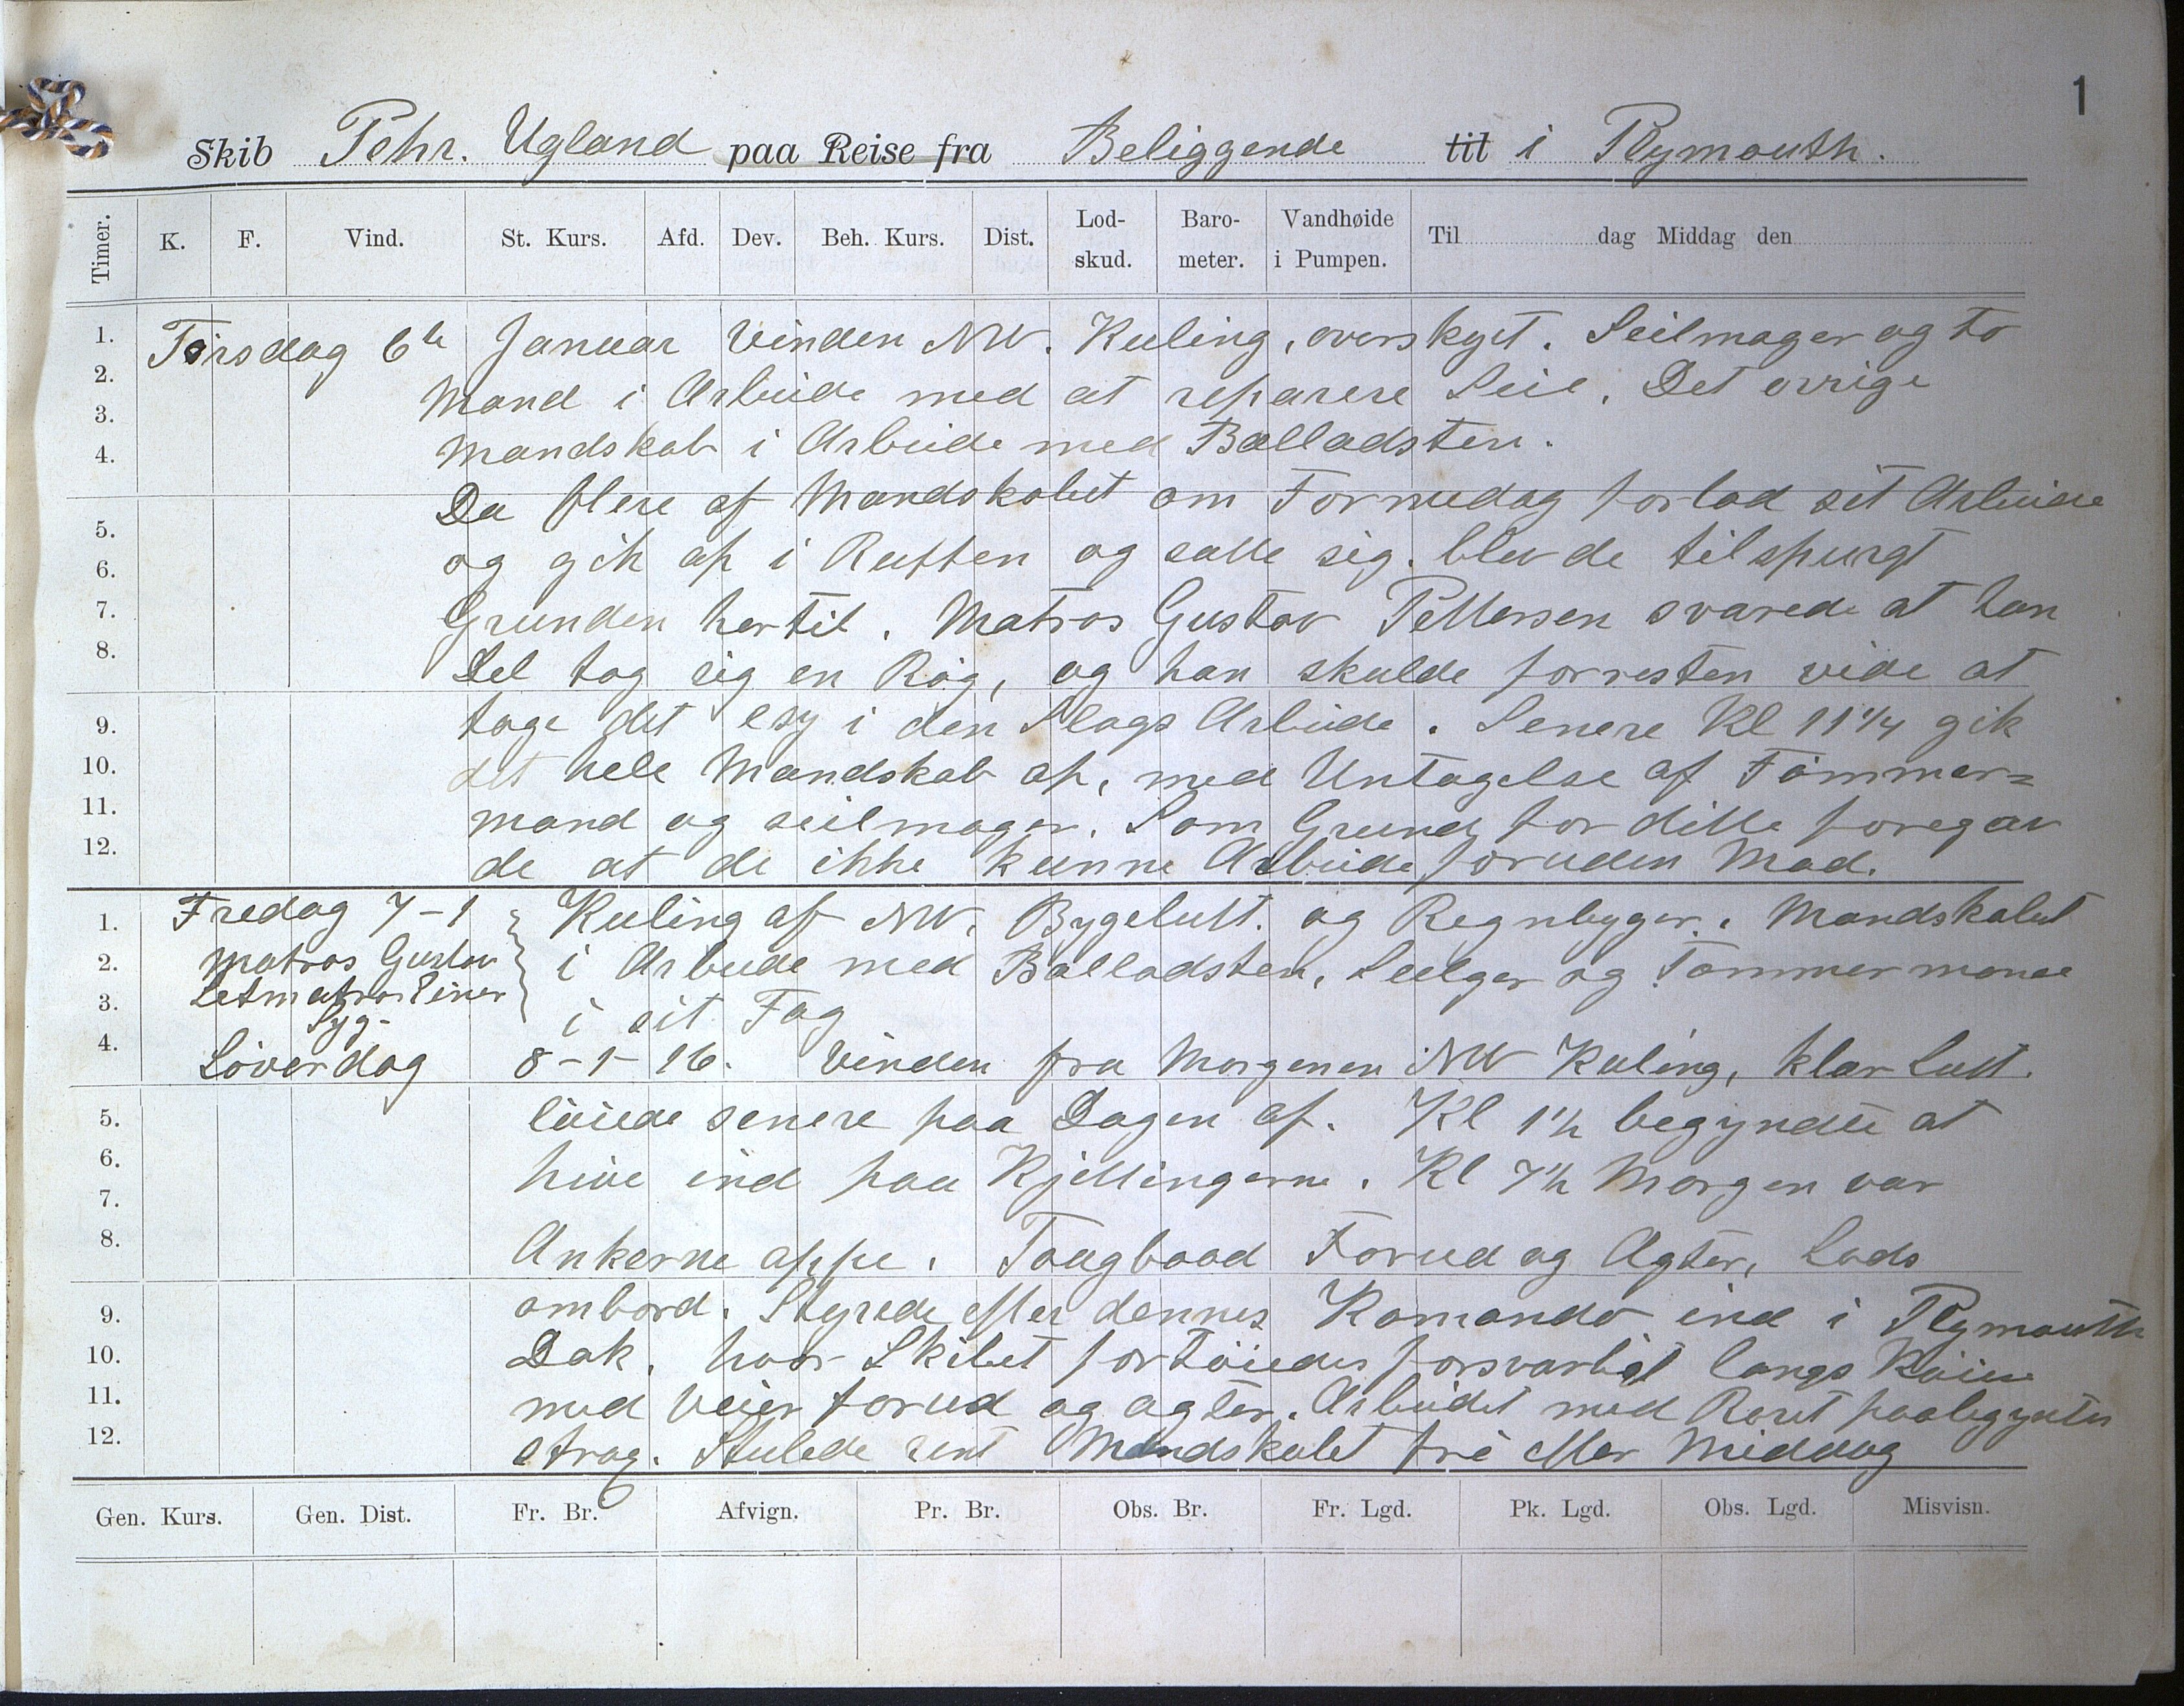 1
Skib Pehr. Ugland paa Reise fra Beliggende til i Plymouth.
Timer. K. F. Vind. St. Kurs. Afd. Dev. Beh. Kurs. Dist. Lod-skud. Baro-meter. Vandhøide i Pumpen. Til dag Middag den
1. Torsdag 6te Januar Vinden NW. Kuling, overskyet. Seilmager og to
2. Mand i Arbeide med at reparere Seil. Det øvrige
3.
4. Mandskab i Arbeide med Balladsten.
Da flere af Mandskabet om Formedag forlod sit Arbeide
5.
6. og gik op i Ruffen og satte sig. blev de tilspurgt
7. Grunden hertil. Matros Gustav Pettersen svarede at han
8. Del tog sig en Røg, og han skulde forresten vide at
9. tage det esy i den Slags Arbeide. Senere Kl 11 1/4 gik
10. det hele Mandskab op, med Untagelse af Tømmer=
11. mand og seilmager. Som Grund for dette foregav
12. de at de ikke kunne Arbeide foruden Mad.
1. Fredag 7-1 Kuling af NW. Bygeluft. og Regnbyger. Mandskabet
2. Matros Gustav i Arbeide med Balladsten, Seilger og Tømmermand
3. Letmatros Einer i sit Fag
Syg-
4. Löverdag 8-1-16. Vinden fra Morgenen NW Kuling, klar Luft.
5. löiede senere paa Dagen af. Kl 1 1/2 begyndte at
6. hive ind paa Kjettingerne. Kl 7 1/2 Morgen var
7.
8. Ankerne oppe. Taugbaad Forud og Agter, Lods
9. ombord. Styrede efter dennes Komando ind i Plymouth
10. Dok. hvor Skibet fortöiedes forsvarligt langs Kaien
11. med Veier forud og agter. Arbeidet med Roret paabegyntes
12. strag. Stulede rent Mandskabet fri efter Middag
Gen. Kurs. Gen. Dist. Fr. Br. Afvign. Pr. Br. Obs. Br. Fr. Lgd. Pk. Lgd. Obs. Lgd. Misvisn.